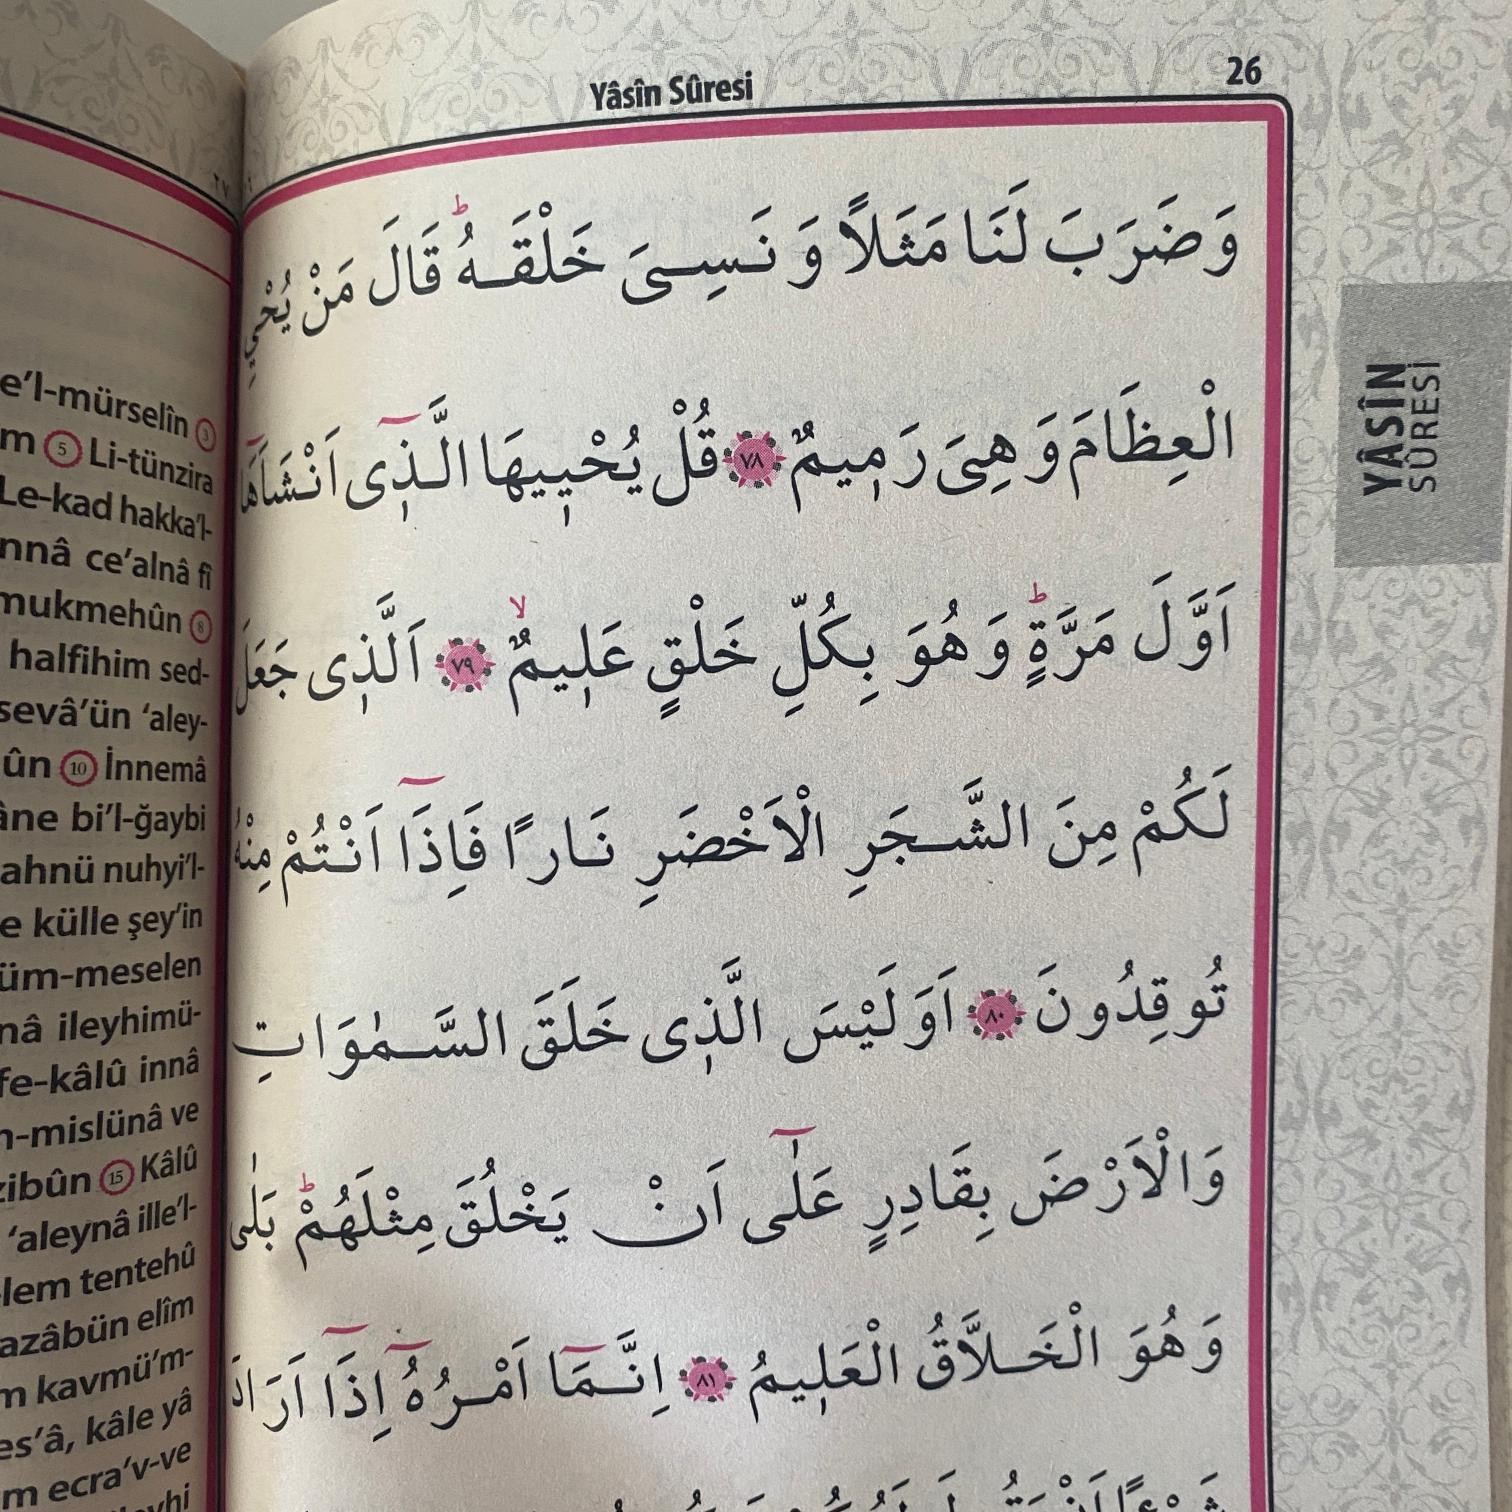 Yâsîn Sûresi
26
وَضَرَبَ لَنَا مَثَلاً وَنَسِىَ خَلْقَهُۜ قَالَ مَنْ يُحْيِ
الْعِظَامَ وَهِىَ رَمٖيمٌ ﴿٧٨﴾ قُلْ يُحْيٖيهَا الَّـذٖٓى اَنْشَاَهَٓا
اَوَّلَ مَرَّةٍۜ وَهُوَ بِكُلِّ خَلْقٍ عَلٖيمٌۙ ﴿٧٩﴾ اَلَّذٖى جَعَلَ
لَكُمْ مِنَ الشَّجَرِ الْاَخْضَرِ نَارًا فَاِذَٓا اَنْتُمْ مِنْهُ
تُوقِدُونَ ﴿٨٠﴾ اَوَلَيْسَ الَّذٖى خَلَقَ السَّمٰوَاتِ
وَالْاَرْضَ بِقَادِرٍ عَلٰٓى اَنْ يَخْلُقَ مِثْلَهُمْۜ بَلٰى
وَهُوَ الْخَلَّاقُ الْعَلٖيمُ ﴿٨١﴾ اِنَّمَٓا اَمْرُهُٓ اِذَٓا اَرَادَ
YÂSÎN
SÛRESİ
e’l-mürselîn 3
m 5 Li-tünzira
Le-kad hakka’l-
nnâ ce’alnâ fî
mukmehûn 8
halfihim sed-
sevâ’ün ‘aley-
ûn 10 İnnemâ
âne bi’l-ğaybi
ahnü nuhyi’l-
e külle şey’in
üm-meselen
nâ ileyhimü-
fe-kâlû innâ
n-mislünâ ve
zibûn 15 Kâlû
‘aleynâ ille’l-
lem tentehû
azâbün elîm
m kavmü’m-
es’â, kâle yâ
m ecra’v-ve